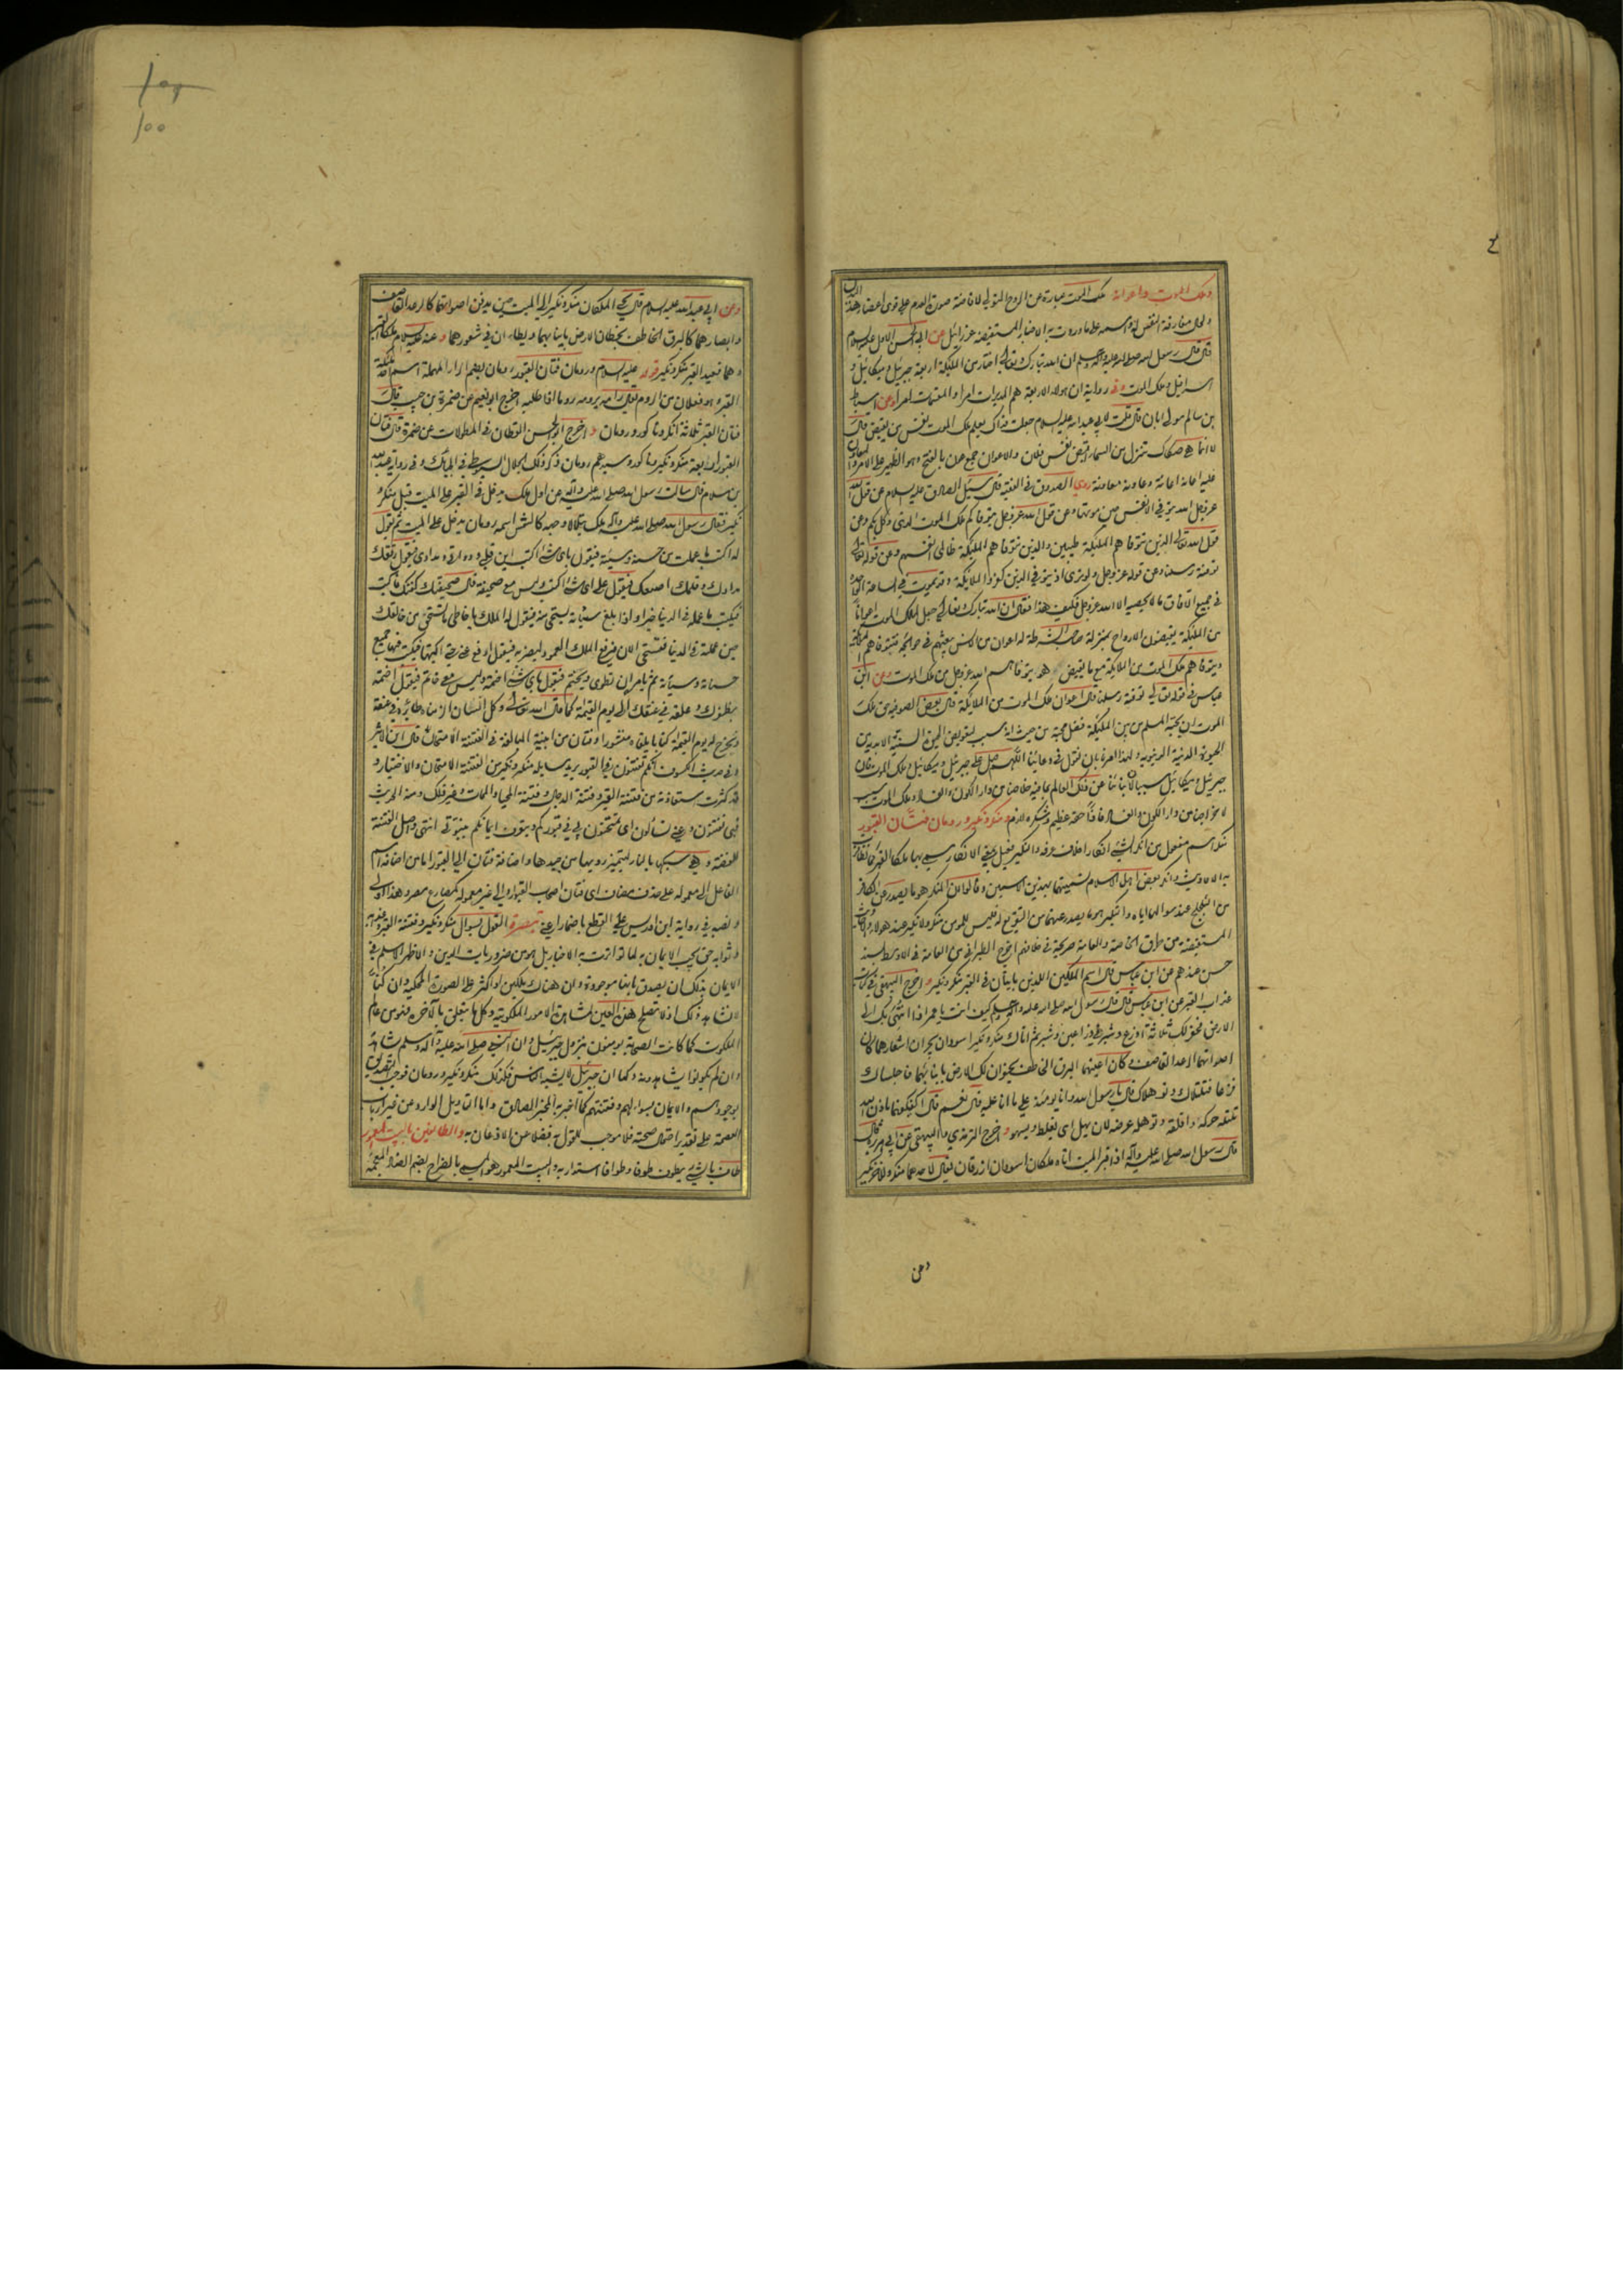 وملك الموت واعوانه ملك الموت عبارة عن الروح المتولي لافاضة صورة العدم على قوى اعضاء هذا البدن
ولحال مفارقة النفس له واسمه على ما وردت به الاخبار المستفيضة عزرائيل عن ابي الحسن الاول عليه السلام
قال قال رسول الله صلى الله عليه وآله وسلم ان الله تبارك وتعالى اختار من الملئكة اربعة جبرئيل وميكائيل و
اسرافيل وملك الموت وفي رواية ان هولاء الاربعة هم المدبرات امرا والمقسمات امرا وعن اسباط
بن سالم مولى ابان قال قلت لابي عبد الله عليه السلام جعلت فداك يعلم ملك الموت نفس من يقبض قال
لا انما هي صكاك تنزل من السماء اقبض نفس فلان والاعوان جمع عون بالفتح وهو الظهير على الامر واعان
عليه اعانة وعاونه معاونة روى الصدوق في الفقيه قال سئل الصادق عليه السلام عن قول الله
عز وجل الله يتوفى الانفس حين موتها وعن قول الله عز وجل يتوفاكم ملك الموت الذي وكل بكم وعن
قول الله تعالى الذين تتوفاهم الملئكة طيبين والذين تتوفاهم الملئكة ظالمي انفسهم وعن قوله تعالى
توفته رسلنا وعن قوله عز وجل ولو ترى اذ يتوفى الذين كفروا الملائكة وقد يموت في الساعة الواحدة
في جميع الآفاق ما لا يحصيه الا الله عز وجل فكيف هذا فقال ان الله تبارك وتعالى جعل لملك الموت اعوانا
من الملئكة يقبضون الارواح بمنزلة صاحب الشرطة له اعوان من الانس يبعثهم في حوائجه فتتوفاهم الملئكة
ويتوفاهم ملك الموت من الملائكة مع ما يقبض هو يتوفاهم الله عز وجل من ملك الموت وعن ابن
عباس في قوله تعالى توفته رسلنا قال اعوان ملك الموت من الملائكة قال بعض الصوفية من ملك
الموت ان يحبه المسلم من بين الملئكة فضل محبة من حيث انه سبب لتفويض
الحيوة الدنية الدنيوية ولهذا امرنا بان نقول في دعائنا اللهم صل على جبرئيل وميكائيل وملك الموت فان
جبرئيل وميكائيل سببا لانبائنا عن ذلك العالم بما فيه خلاصنا من دار الكون والفساد وملك الموت سبب
لاخراجنا من دار الكون والفساد فاذا حقه عظيم وشكره لازم ومنكر ونكير ورومان فتان القبور
منكر اسم مفعول من انكر الشئ انكارا خلاف عرفه والنكير فعيل بمعنى الانكار سمي بهما ملكا القبر كما تظافرت
به الاحاديث وانكر بعض اهل الاسلام تسميتهما بهذين الاسمين وقالوا ان المنكر هو ما يصدر من الكافر
من التلجلج عند سوالهما اياه والنكير هو ما يصدر عنهما من التقريع له فليس للمومن منكر ولا نكير عند هولاء والاحاديث
المستفيضة من طرق الخاصة والعامة صريحة في خلافهم اخرج الطبراني من العامة في الاوسط بسند
حسن عندهم عن ابن عباس قال اسم الملكين اللذين ياتيان في القبر منكر ونكير واخرج البيهقي في كتاب
عذاب القبر عن ابن عباس قال قال رسول الله صلى الله عليه وآله وسلم كيف انت يا عمر اذا انتهي بك الى
الارض فحفر لك ثلاثة اذرع وشبر في ذراعين وشبر ثم اتاك منكر ونكير اسودان يجران اشعارهما كان
اصواتهما الرعد القاصف وكان اعينهما البرق الخاطف يحفران لك الارض بانيابهما فاجلساك
فزعا فتلتلاك وتوهلاك قال يا رسول الله وانا يومئذ على ما انا عليه قال نعم قال اكفيكهما باذن الله
تلتله حركه واقلقه وتوهله عرضه لان يهل اي يغلط ويسهو واخرج الترمذي والبيهقي عن ابي هريرة قال
قال رسول الله صلى الله عليه وآله اذا قبر الميت اتاه ملكان اسودان ازرقان يقال لاحدهما منكر وللآخر نكير
وعن
وعن ابي عبد الله عليه السلام قال يجئ الملكان منكر ونكير الى الميت حين يدفن اصواتهما كالرعد القاصف
وابصارهما كالبرق الخاطف يخطان الارض بانيابهما ويطاءان في شعورهما وعنه عليه السلام ملكا القبر
وهما قعيدا القبر منكر ونكير قوله عليه السلام ورومان فتان القبور رومان بضم الراء المهملة اسم لملك
القبر وهو فعلان من الروم تقول رامه يرومه روما اذا طلبه اخرج ابو نعيم عن ضمرة بن حبيب قال
فتان القبر ثلاثة انكر وناكور ورومان واخرج ابو الحسن القطان في المطولات عن ضمرة قال فتان
القبور اربعة منكر ونكير وناكور وسيدهم رومان ذكر ذلك الجلال السيوطي في الحبائك وفي رواية عبد الله
بن سلام قال سالت رسول الله صلى الله عليه وآله عن اول ملك يدخل في القبر على الميت قبل منكر و
نكير فقال رسول الله صلى الله عليه وآله ملك يتلالا وجهه كالشمس اسمه رومان يدخل على الميت ثم يقول
له اكتب ما عملت من حسنة وسيئة فيقول باي شئ اكتب اين قلمي ودواتي ومدادي فيقول ريقك
مدادك وقلمك اصبعك فيقول على اي شئ اكتب وليس معي صحيفة قال صحيفتك كفنك فاكتب
فيكتب ما عمله في الدنيا خيرا واذا بلغ سيئاته يستحي منه فيقول له الملك يا خاطي ما تستحي من خالقك
حين عملته في الدنيا فتستحي الان فيرفع الملك العمود ليضربه فيقول ارفع عني حتى اكتبها فيكتب فيها جميع
حسناته وسيئاته ثم يامره ان يطوى ويختم فيقول باي شئ اختمه وليس معي خاتم فيقول اختمه
بظفرك وعلقه في عنقك الى يوم القيمة كما قال الله تعالى وكل انسان الزمناه طائره في عنقه
ونخرج له يوم القيمة كتابا يلقاه منشورا وفتان من ابنية المبالغة في الفتنة الامتحان قال ابن الاثير
وفي حديث الكسوف انكم تفتنون في القبور يريد مسايلة منكر ونكير من الفتنة الامتحان والاختبار و
قد كثرت استعاذته من فتنة القبر وفتنة الدجال وفتنة المحيا والممات وغير ذلك ومنه الحديث
فبي تفتنون وعني تسألون اي تمتحنون بي في قبوركم ويتعرف ايمانكم بنبوتي انتهى واصل الفتنة
للفضة وهي سبكها بالنار لتمييز رديها من جيدها واضافة فتان الى القبور اما من اضافة اسم
الفاعل الى معموله على حذف مضاف اي فتان اصحاب القبور او الى غير معموله كمصارع مصر وهذا اولى
ونصبه في رواية ابن ادريس على القطع باضمار اعني تبصرة القول بسوال منكر ونكير وفتنة القبر وعذابه
وثوابه حق يجب الايمان به لما تواترت به الاخبار بل هو من ضروريات الدين والاظهر الاسلم في
الايمان بذلك ان يصدق بانها موجودة وان هناك ملكين او اكثر على الصورة المحكية وان كنا
لا نشاهد ذلك اذ لا تصلح هذه العين لمشاهدة الامور الملكوتية وكل ما يتعلق بالآخرة فهو من عالم
الملكوت كما كانت الصحابة يومنون بنزول جبرئيل وان النبي صلى الله عليه وآله وسلم يشاهده
وان لم يكونوا يشاهدونه وكما ان جبرئيل لا يشبه الناس فكذلك منكر ونكير ورومان فوجب التصديق
بوجودهم والايمان بسوالهم وفتنتهم كما اخبر به المخبر الصادق واما التاويل الوارد عن غير ارباب
العصمة على تقدير احتمال صحته فلا موجب للقول به فضلا عن الاذعان به والطائفين بالبيت المعمور
طاف بالشئ يطوف طوفا وطوافا استدار به والبيت المعمور هو المسمى بالضراح بضم الضاد المعجمة